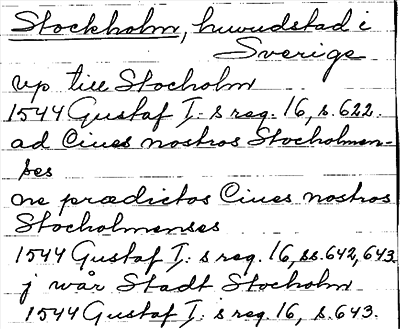 Stockholm, huvudstad i
Sverige
vp till Stocholm
1544 Gustaf I:s reg. 16, s. 622.
ad Ciues nostros Stocholmen-
ses
ne prædictos Ciues nostros
Stocholmenses
1544 Gustaf I:s reg. 16, ss. 642, 643
j wår Stadt Stocholm
1544 Gustaf I:s reg. 16, s. 643.